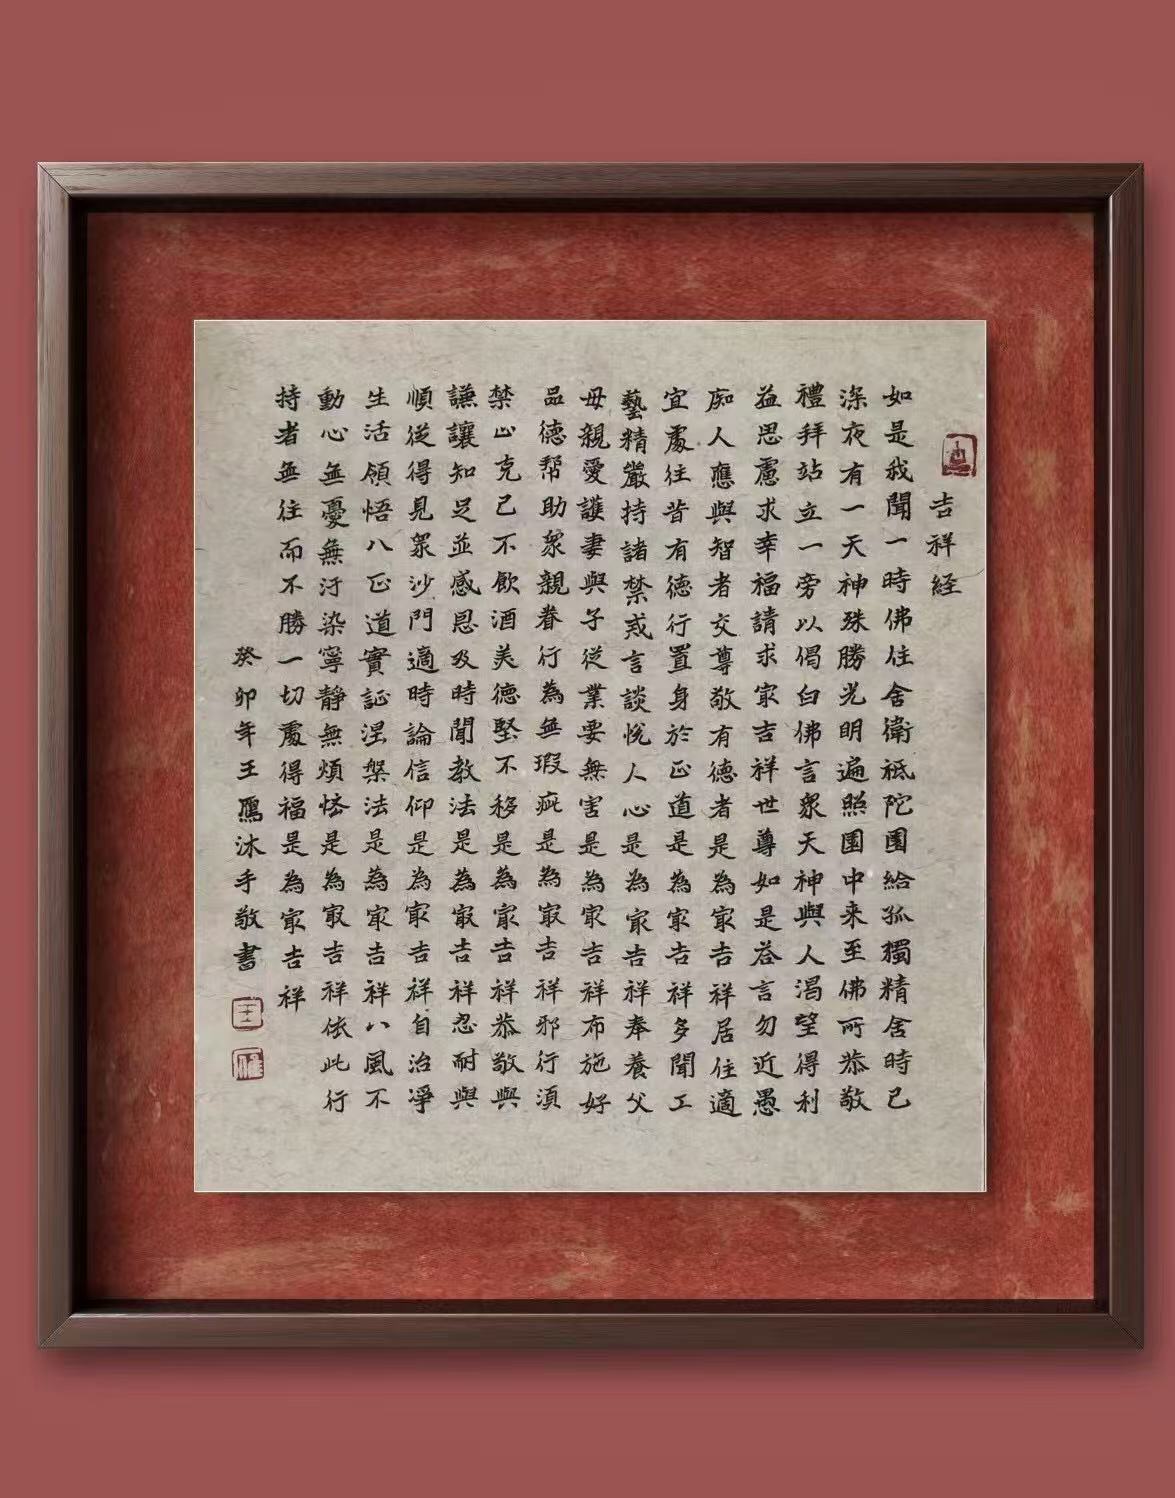 吉祥経
如是我聞一時佛住舍衛祗陀園給孤獨精舍時已
深夜有一天神殊勝光明遍照園中来至佛所恭敬
禮拜站立一旁以偈白佛言衆天神與人渴望得利
益思慮求幸福請求㝡吉祥世尊如是荅言勿近愚
痴人應與智者交尊敬有德者是為㝡吉祥居住適
宜處往昔有德行置身於正道是為㝡吉祥多聞工
藝精嚴持諸禁戒言談悅人心是為㝡吉祥奉養父
母親愛護妻與子從業要無害是為㝡吉祥布施好
品德帮助衆親眷行為無瑕疵是為㝡吉祥邪行須
禁止克己不飲酒美德堅不移是為㝡吉祥恭敬與
謙讓知足並感恩及時聞教法是為㝡吉祥忍耐與
順從得見衆沙門適時論信仰是為㝡吉祥自治凈
生活領悟八正道實証涅槃法是為㝡吉祥八風不
動心無憂無汙染寧靜無煩惱是為㝡吉祥依此行
持者無往而不勝一切處得福是為㝡吉祥
癸卯年王鴈沐手敬書